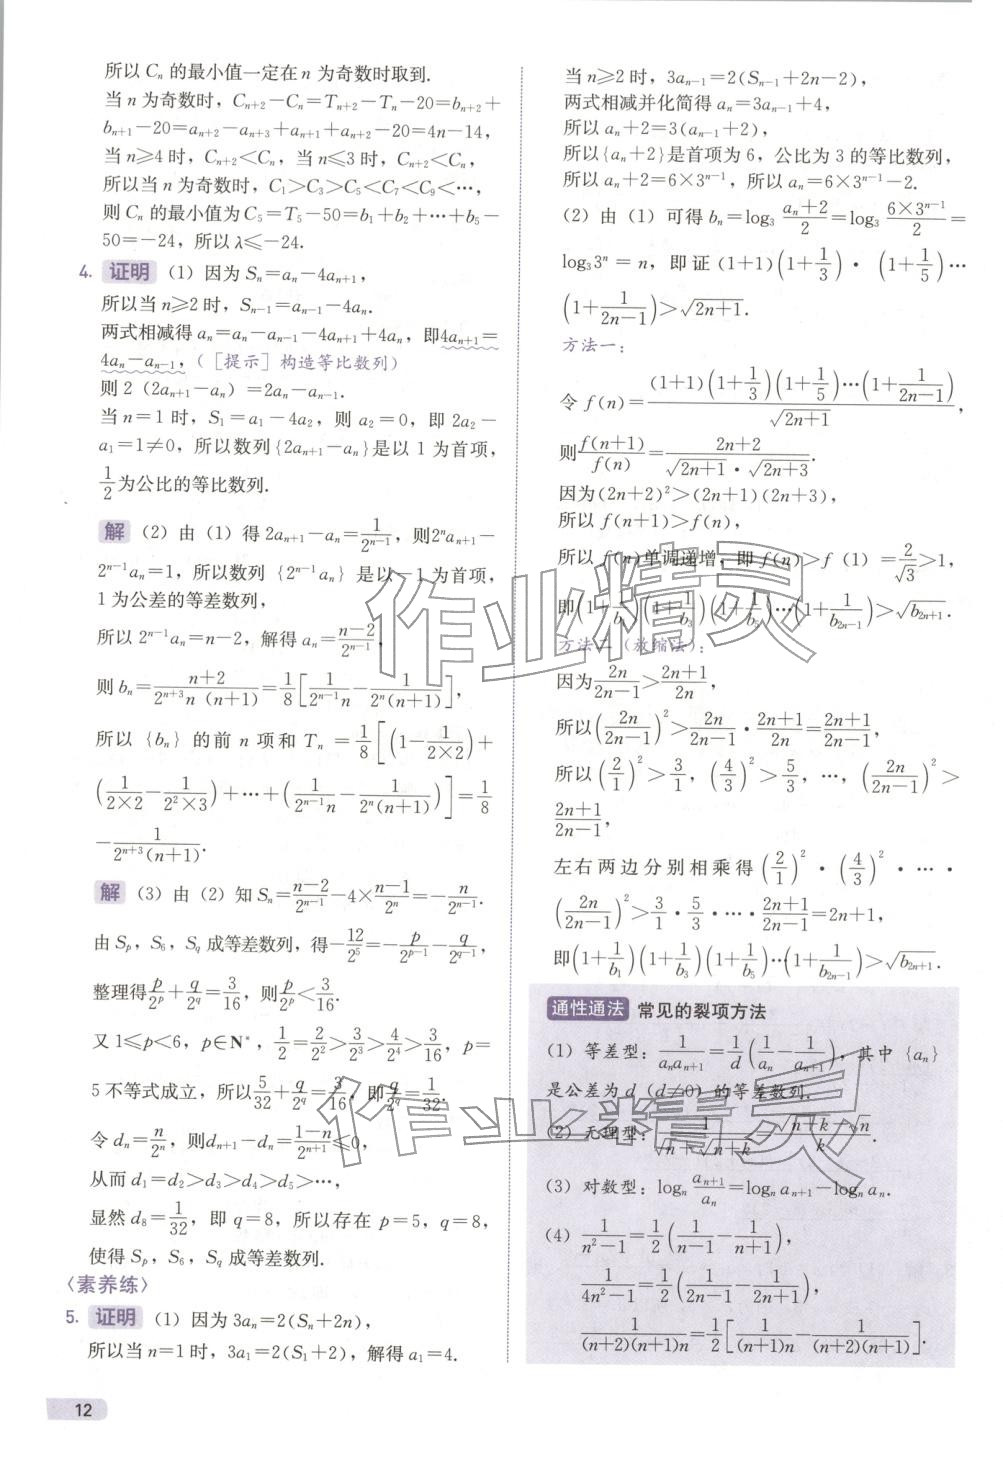 所以 Cₙ 的最小值一定在 n 为奇数时取到.
当 n 为奇数时，Cₙ₊₂－Cₙ＝Tₙ₊₂－Tₙ－20＝bₙ₊₂＋
bₙ₊₁－20＝aₙ₊₂－aₙ₊₃＋aₙ₊₁＋aₙ₊₂－20＝4n－14，
当 n≥4 时，Cₙ₊₂＜Cₙ，当 n≤3 时，Cₙ₊₂＜Cₙ，
所以当 n 为奇数时，C₁＞C₃＞C₅＜C₇＜C₉＜…，
则 Cₙ 的最小值为 C₅＝T₅－50＝b₁＋b₂＋…＋b₅－
50＝－24，所以 λ≤－24.
4. 证明 (1) 因为 Sₙ＝aₙ－4aₙ₊₁，
所以当 n≥2 时，Sₙ₋₁＝aₙ₋₁－4aₙ.
两式相减得 aₙ＝aₙ－aₙ₋₁－4aₙ₊₁＋4aₙ，即4aₙ₊₁＝
4aₙ－aₙ₋₁，([提示] 构造等比数列)
则 2 (2aₙ₊₁－aₙ) ＝2aₙ－aₙ₋₁，
当 n＝1 时，S₁＝a₁－4a₂，则 a₂＝0，即 2a₂－
a₁＝1≠0，所以数列{2aₙ₊₁－aₙ}是以 1 为首项，
1/2 为公比的等比数列.
解 (2) 由 (1) 得 2aₙ₊₁－aₙ＝1/2ⁿ⁻¹，则2ⁿaₙ₊₁－
2ⁿ⁻¹aₙ＝1，所以数列 {2ⁿ⁻¹aₙ} 是以－1 为首项，
1 为公差的等差数列，
所以 2ⁿ⁻¹aₙ＝n－2，解得 aₙ＝(n－2)/2ⁿ⁻¹，
则 bₙ＝(n＋2)/(2ⁿ⁺³n (n＋1))＝1/8[1/(2ⁿ⁻¹n)－1/(2ⁿ(n＋1))]，
所以 {bₙ} 的前 n 项和 Tₙ ＝1/8[(1－1/(2×2))＋
(1/(2×2)－1/(2²×3))＋…＋(1/(2ⁿ⁻¹n)－1/(2ⁿ(n＋1)))]＝1/8
－1/(2ⁿ⁺³(n＋1)).
解 (3) 由 (2) 知 Sₙ＝(n－2)/2ⁿ⁻¹－4×(n－1)/2ⁿ＝－n/2ⁿ⁻¹.
由 Sₚ，S₆，S_q 成等差数列，得－12/2⁵＝－p/2ᵖ⁻¹－q/2^(q－1)，
整理得 p/2ᵖ＋q/2^q＝3/16，则 p/2ᵖ＜3/16.
又 1≤p＜6，p∈N*，1/2＝2/2²＞3/2³＞4/2⁴＞3/16，p＝
5 不等式成立，所以 5/32＋q/2^q＝3/16，即 q/2^q＝1/32.
令 dₙ＝n/2ⁿ，则dₙ₊₁－dₙ＝(1－n)/2ⁿ⁺¹≤0，
从而 d₁＝d₂＞d₃＞d₄＞d₅＞…，
显然 d₈＝1/32，即 q＝8，所以存在 p＝5，q＝8，
使得 Sₚ，S₆，S_q 成等差数列.
〈素养练〉
5. 证明 (1) 因为 3aₙ＝2(Sₙ＋2n)，
所以当 n＝1 时，3a₁＝2(S₁＋2)，解得 a₁＝4.
12
当 n≥2 时，3aₙ₋₁＝2(Sₙ₋₁＋2n－2)，
两式相减并化简得 aₙ＝3aₙ₋₁＋4，
所以 aₙ＋2＝3(aₙ₋₁＋2)，
所以{aₙ＋2}是首项为 6，公比为 3 的等比数列，
所以 aₙ＋2＝6×3ⁿ⁻¹，所以 aₙ＝6×3ⁿ⁻¹－2.
(2) 由 (1) 可得 bₙ＝log₃ (aₙ＋2)/2＝log₃ (6×3ⁿ⁻¹)/2＝
log₃3ⁿ ＝ n，即证 (1＋1)(1＋1/3)·(1＋1/5)…
(1＋1/(2n－1))＞√(2n＋1).
方法一：
令 f(n)＝(1＋1)(1＋1/3)(1＋1/5)…(1＋1/(2n－1))/√(2n＋1)，
则 f(n＋1)/f(n)＝(2n＋2)/(√(2n＋1)·√(2n＋3)).
因为(2n＋2)²＞(2n＋1)(2n＋3)，
所以 f(n＋1)＞f(n)，
所以 f(n)单调递增，即 f(n)＞f (1) ＝2/√3＞1，
即(1＋1/b₁)(1＋1/b₃)(1＋1/b₅)…(1＋1/b₂ₙ₋₁)＞√b₂ₙ₊₁.
方法二 (放缩法)：
因为 2n/(2n－1)＞(2n＋1)/2n，
所以(2n/(2n－1))²＞2n/(2n－1)·(2n＋1)/2n＝(2n＋1)/(2n－1)，
所以 (2/1)²＞3/1，(4/3)²＞5/3，…，(2n/(2n－1))²＞
(2n＋1)/(2n－1)，
左右两边分别相乘得 (2/1)²·(4/3)²·…·
(2n/(2n－1))²＞3/1·5/3·…·(2n＋1)/(2n－1)＝2n＋1，
即(1＋1/b₁)(1＋1/b₃)(1＋1/b₅)…(1＋1/b₂ₙ₋₁)＞√b₂ₙ₊₁.
通性通法 常见的裂项方法
(1) 等差型：1/(aₙaₙ₊₁)＝1/d(1/aₙ－1/aₙ₊₁)，其中 {aₙ}
是公差为 d (d≠0) 的等差数列.
(2) 无理型：1/(√n＋√(n＋k))＝(√(n＋k)－√n)/k.
(3) 对数型：logₙ aₙ₊₁/aₙ＝logₙ aₙ₊₁－logₙ aₙ.
(4) 1/(n²－1)＝1/2(1/(n－1)－1/(n＋1))，
1/(4n²－1)＝1/2(1/(2n－1)－1/(2n＋1))，
1/((n＋2)(n＋1)n)＝1/2[1/((n＋1)n)－1/((n＋2)(n＋1))].
作业精灵
作业精灵